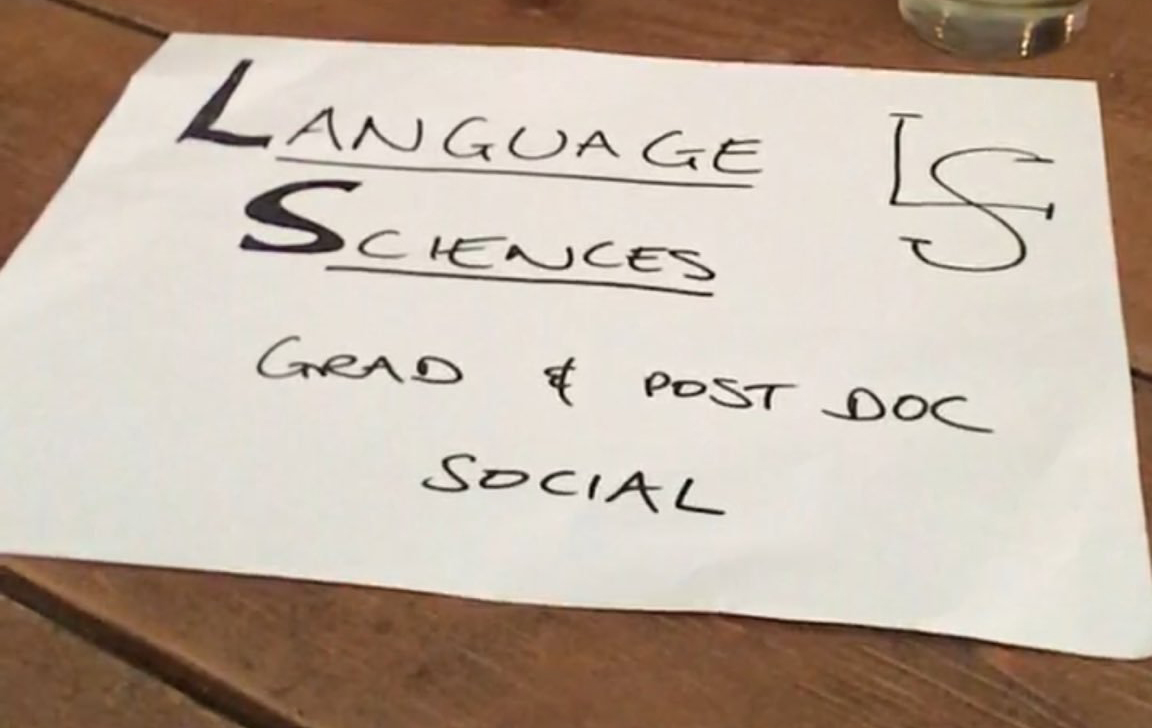 LANGUAGE
SCIENCES
LS
GRAD & POST DOC
SOCIAL